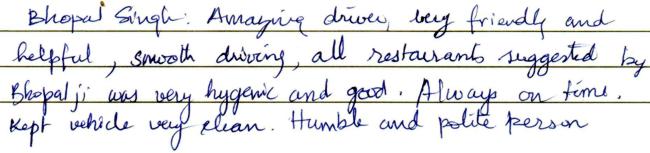 Bhopal Singh. Amazing driver, very friendly and
helpful, smooth driving, all restaurants suggested by
Bhopal ji was very hygenic and good. Always on time.
Kept vehicle very clean. Humble and polite person